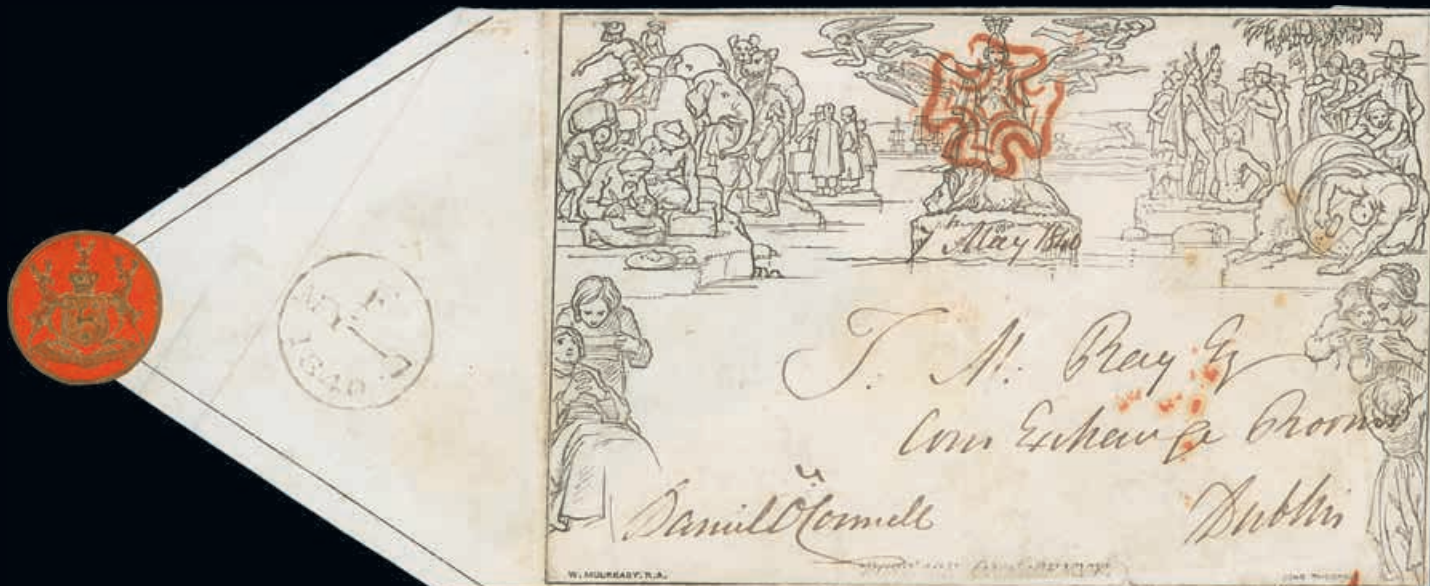 F
MY 7
1840
7th May 1840
T. M. Ray Esq
Corn Exchange Rooms
Dublin
Daniel O'Connell
W. MULREADY. R.A.
JOHN THOMPSON